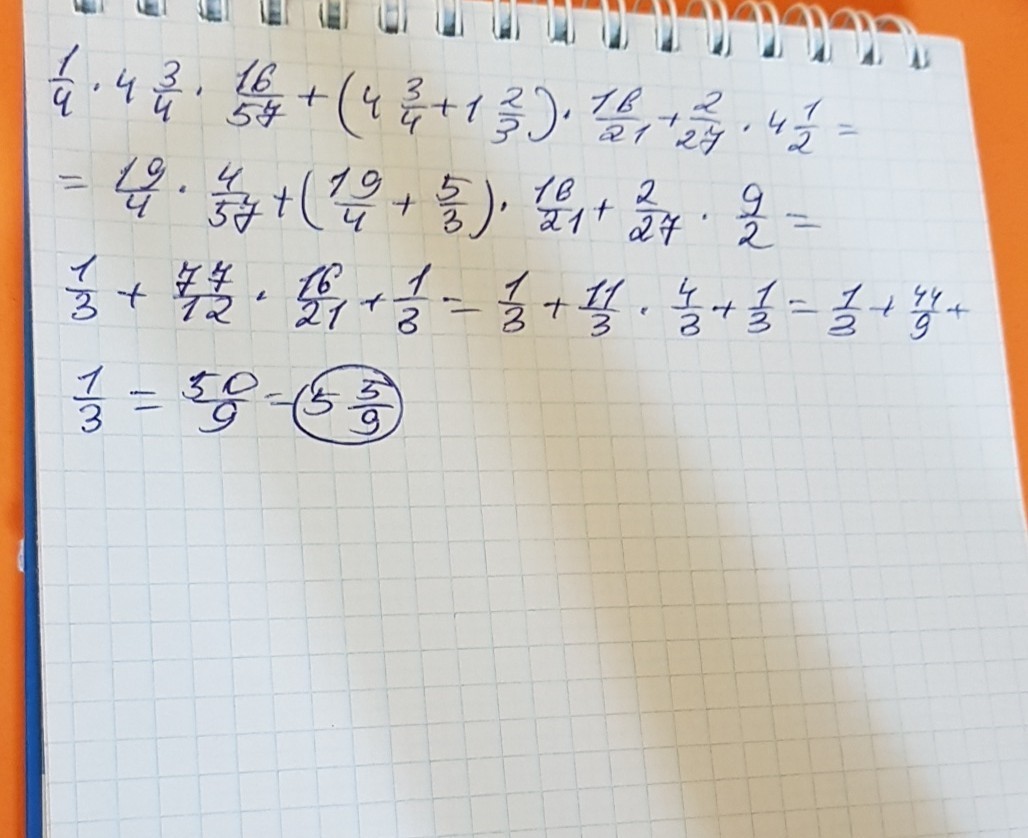 1/4 · 4 3/4 · 16/57 + (4 3/4 + 1 2/3) · 16/21 + 2/27 · 4 1/2 =
= 19/4 · 4/57 + (19/4 + 5/3) · 16/21 + 2/27 · 9/2 =
1/3 + 77/12 · 16/21 + 1/3 = 1/3 + 11/3 · 4/3 + 1/3 = 1/3 + 44/9 +
1/3 = 50/9 = 5 5/9